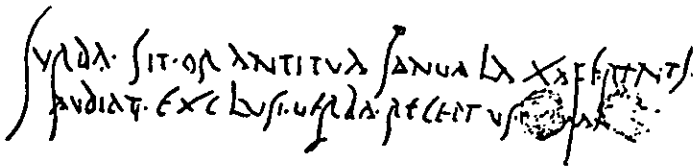 SVRDA · SIT · ORANTI TVA IANVA LAXA FERENTI
AVDIAT · EXCLVSI · VERBA · RECEPTVS · AMANS